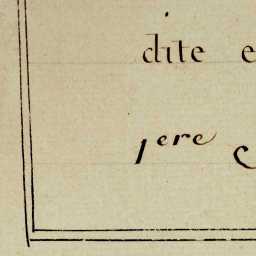 dite e
1ere C